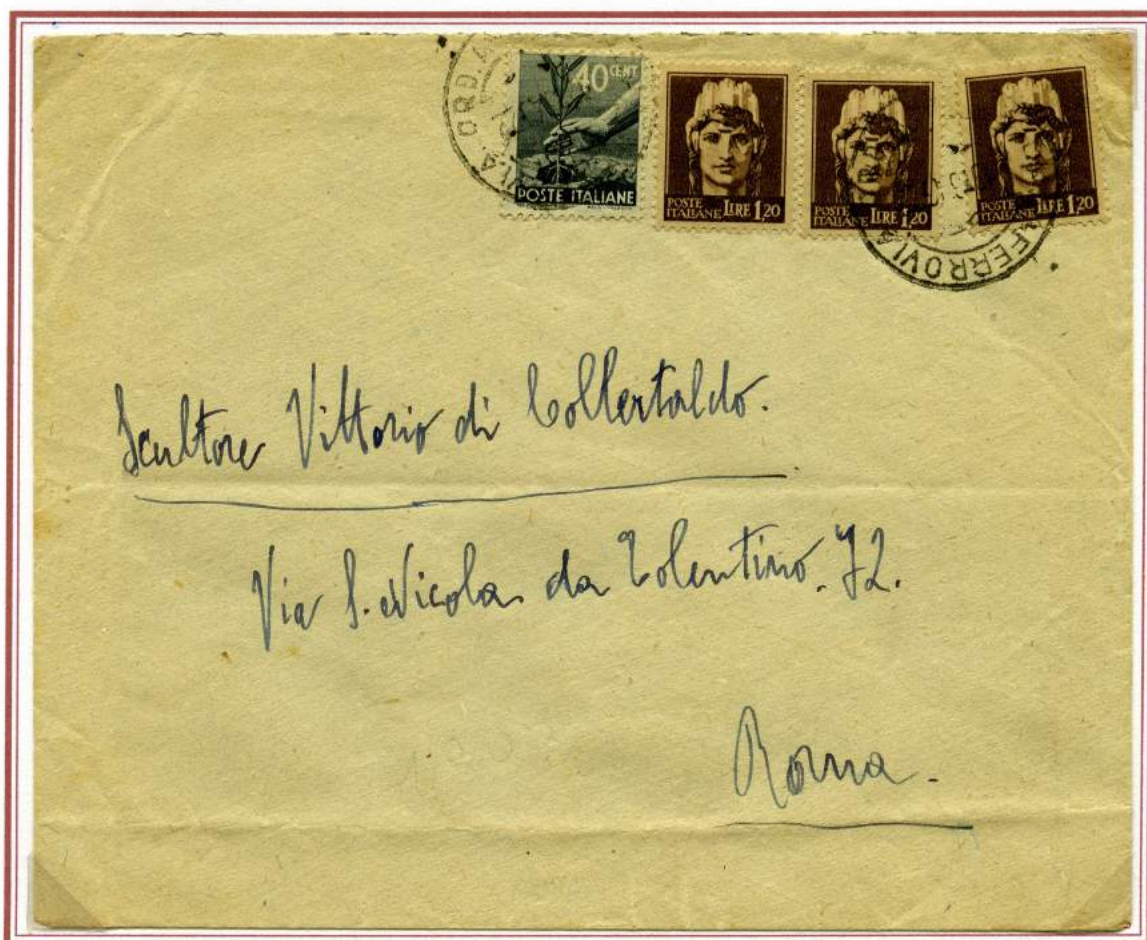 ORD. A
40 CENT
POSTE ITALIANE
POSTE ITALIANE LIRE 1,20
POSTE ITALIANE LIRE 1,20
POSTE ITALIANE LIRE 1,20
FERROVIA
Scultore Vittorio di Colbertaldo.
Via S. Nicola da Tolentino. 72.
Roma.